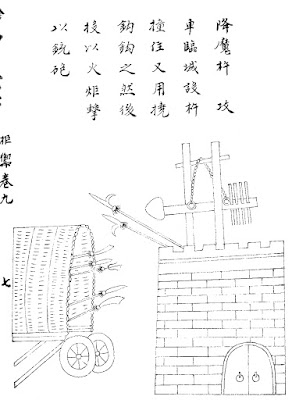 降魔杵 攻
車臨城設杵
撞住又用撓
鈎鈎之然後
投以火炬擊
以銃砲
拒禦卷九
七